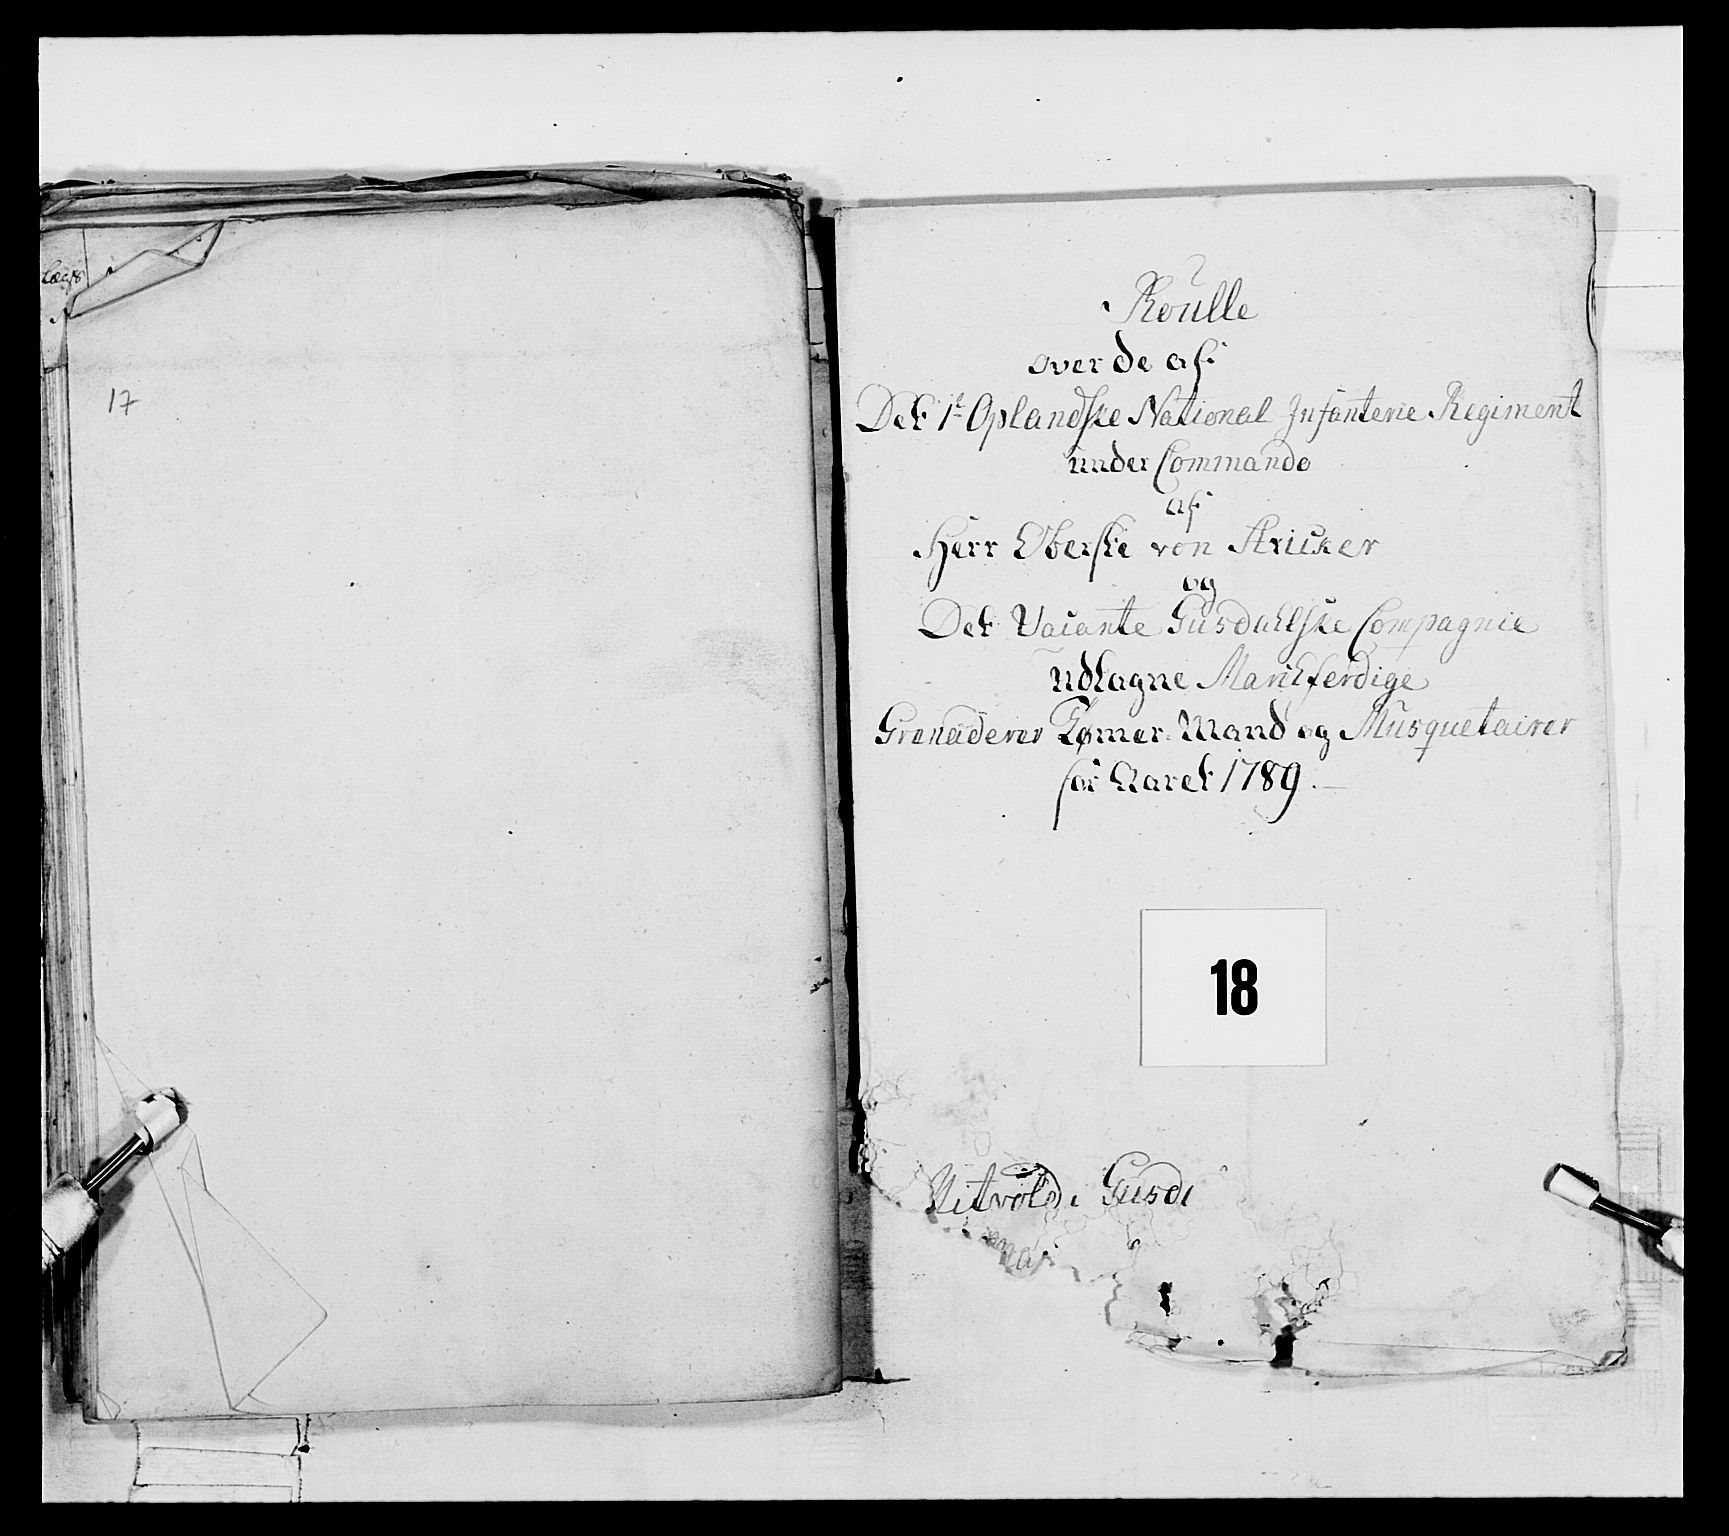 Lægs
17
Roulle
over de af
Det 1t Oplandske National Infanterie Regiment
under Commando
af
Herr Oberste von Stricker
og
Det Vacante Gusdahlske Compagnie
udtagne Marchferdige
Grenaderer Tømer Mand og Musquetairer
for Aaret 1789.
18
Gusd